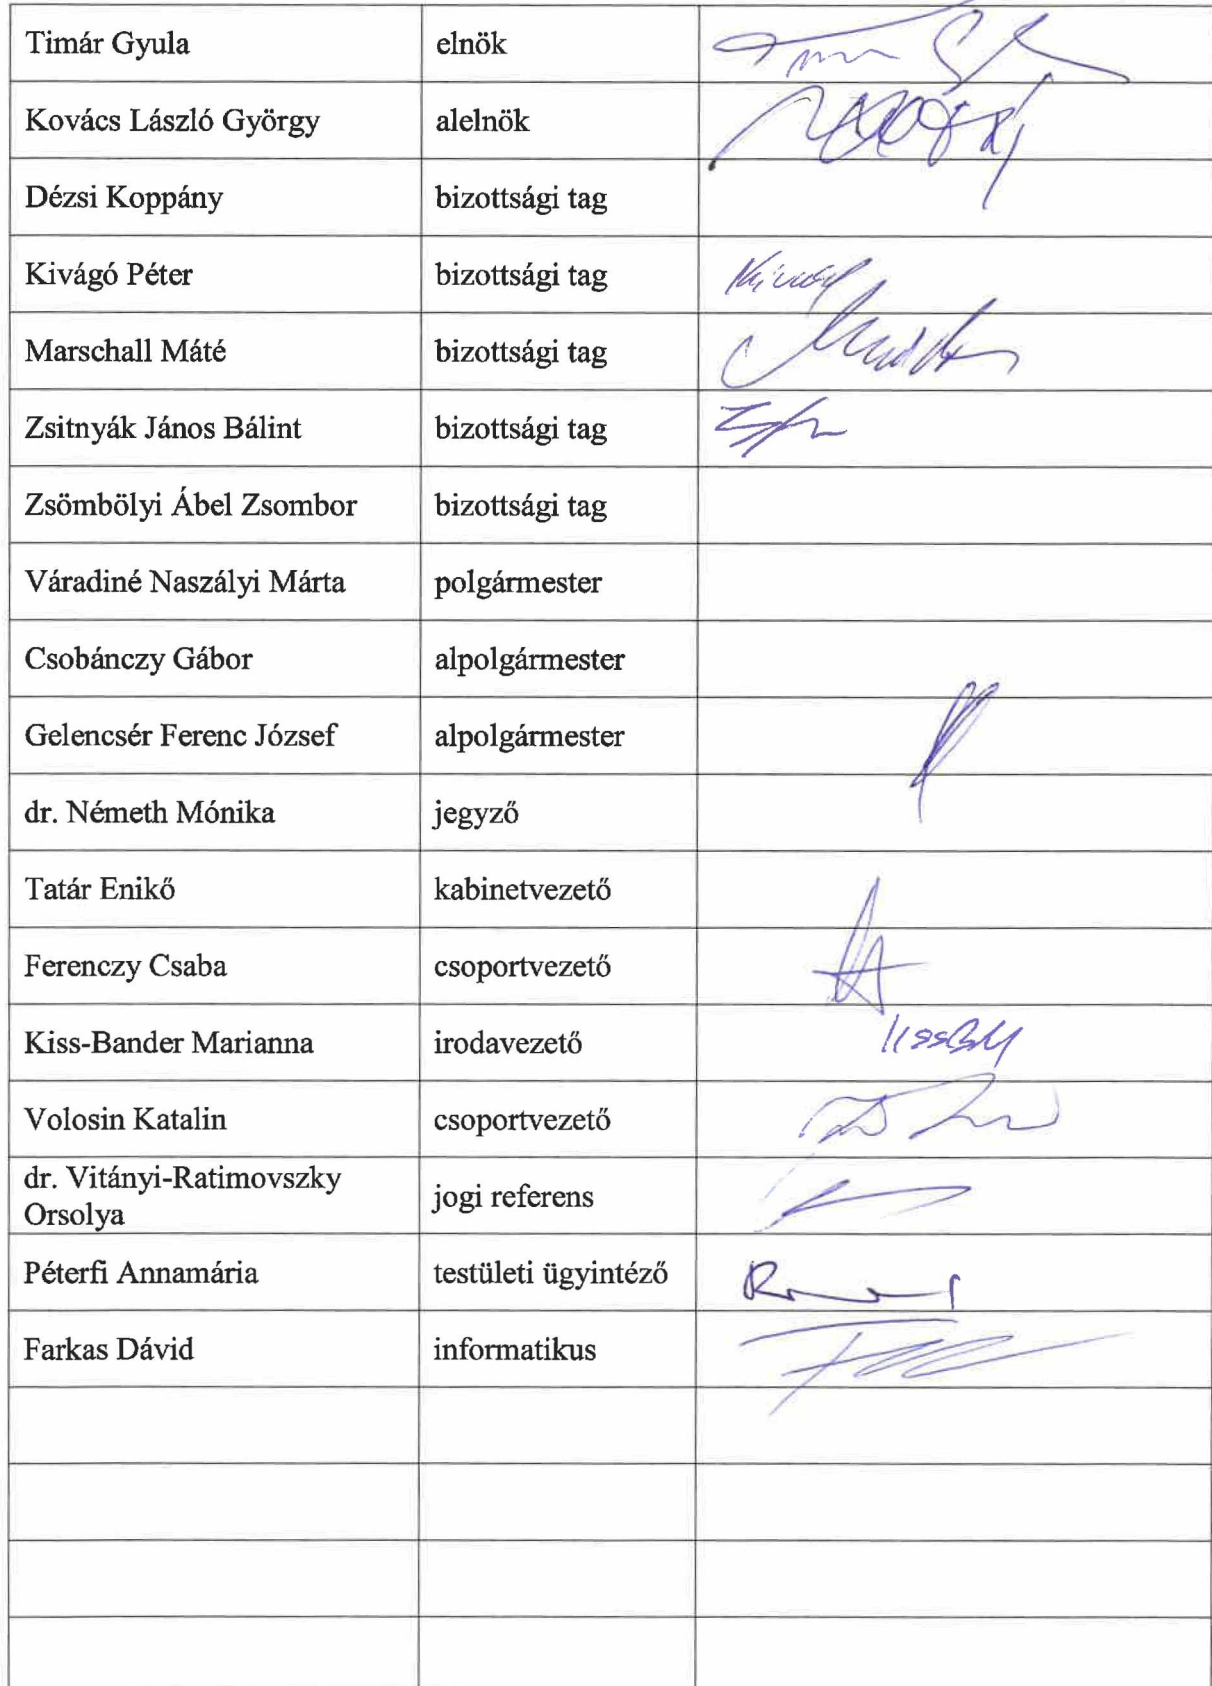 Timár Gyula elnök
Kovács László György alelnök
Dézsi Koppány bizottsági tag
Kivágó Péter bizottsági tag
Marschall Máté bizottsági tag
Zsitnyák János Bálint bizottsági tag
Zsömbölyi Ábel Zsombor bizottsági tag
Váradiné Naszályi Márta polgármester
Csobánczy Gábor alpolgármester
Gelencsér Ferenc József alpolgármester
dr. Németh Mónika jegyző
Tatár Enikő kabinetvezető
Ferenczy Csaba csoportvezető
Kiss-Bander Marianna irodavezető
Volosin Katalin csoportvezető
dr. Vitányi-Ratimovszky
Orsolya jogi referens
Péterfi Annamária testületi ügyintéző
Farkas Dávid informatikus